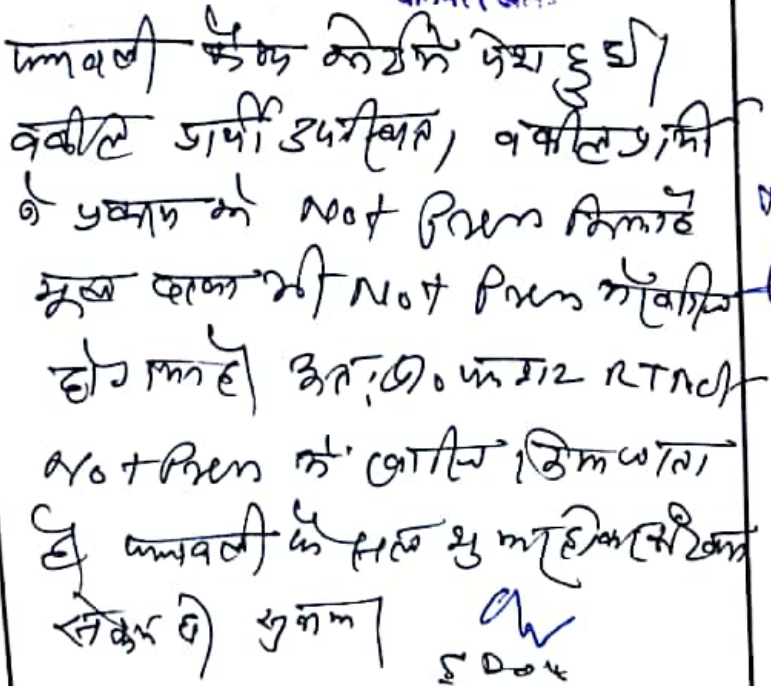 पत्रावली कैम्प कोर्ट में पेश हुई।
वकील प्रार्थी उपस्थित, वकील प्रार्थी
ने प्रकरण को Not Press किया है
मूल दावा भी Not Press में खारिज
हो गया है। अतः प्रा० पत्र 212 RTAct
Not Press में खारिज किया जाता
है पत्रावली फैसल शुमार होकर
हो सुनाया।
SDO